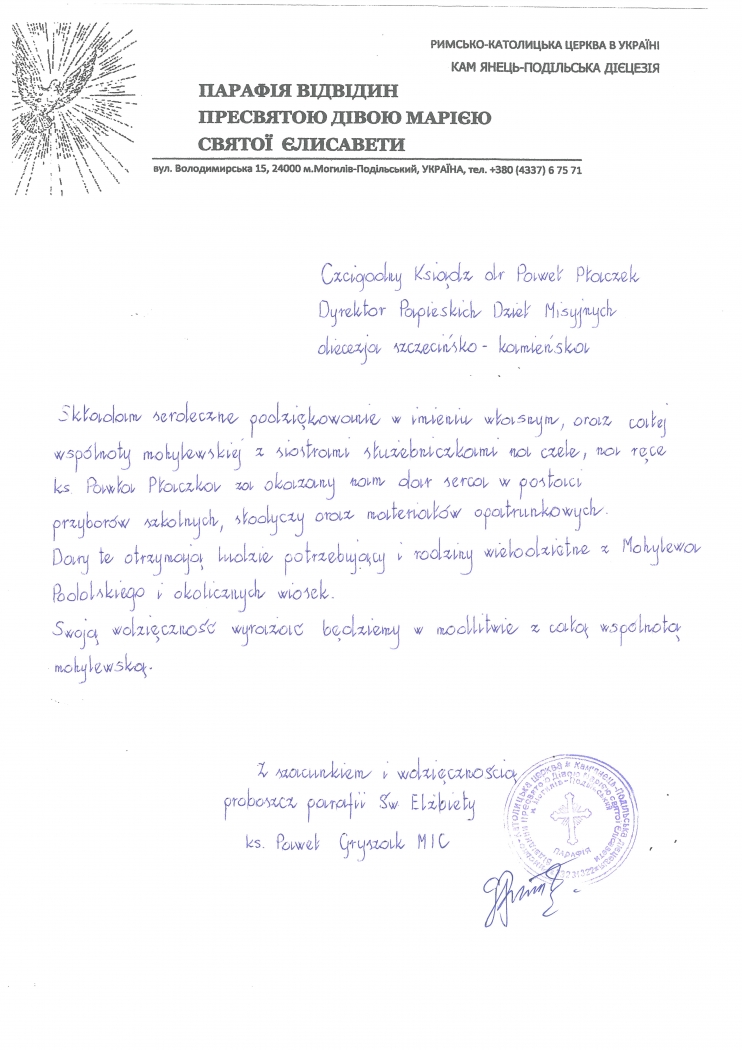 РИМСЬКО-КАТОЛИЦЬКА ЦЕРКВА В УКРАЇНІ
КАМ ЯНЕЦЬ-ПОДІЛЬСЬКА ДІЄЦЕЗІЯ
ПАРАФІЯ ВІДВІДИН
ПРЕСВЯТОЮ ДІВОЮ МАРІЄЮ
СВЯТОЇ ЄЛИСАВЕТИ
вул. Володимирська 15, 24000 м.Могилів-Подільський, УКРАЇНА, тел. +380 (4337) 6 75 71
Czcigodny Ksiądz dr Paweł Płaczek
Dyrektor Papieskich Dzieł Misyjnych
diecezja szczecińsko - kamieńska
Składam serdeczne podziękowanie w imieniu własnym, oraz całej
wspólnoty mohylewskiej z siostrami służebniczkami na czele, na ręce
ks. Pawła Płaczka za okazany nam dar serca w postaci
przyborów szkolnych, słodyczy oraz materiałów opatrunkowych.
Dary te otrzymają ludzie potrzebujący i rodziny wielodzietne z Mohylewa
Podolskiego i okolicznych wiosek.
Swoją wdzięczność wyrażać będziemy w modlitwie z całą wspólnotą
mohylewską.
Z szacunkiem i wdzięcznością
proboszcz parafii Św Elżbiety
ks. Paweł Gryszak MIC
ПАРАФІЯ